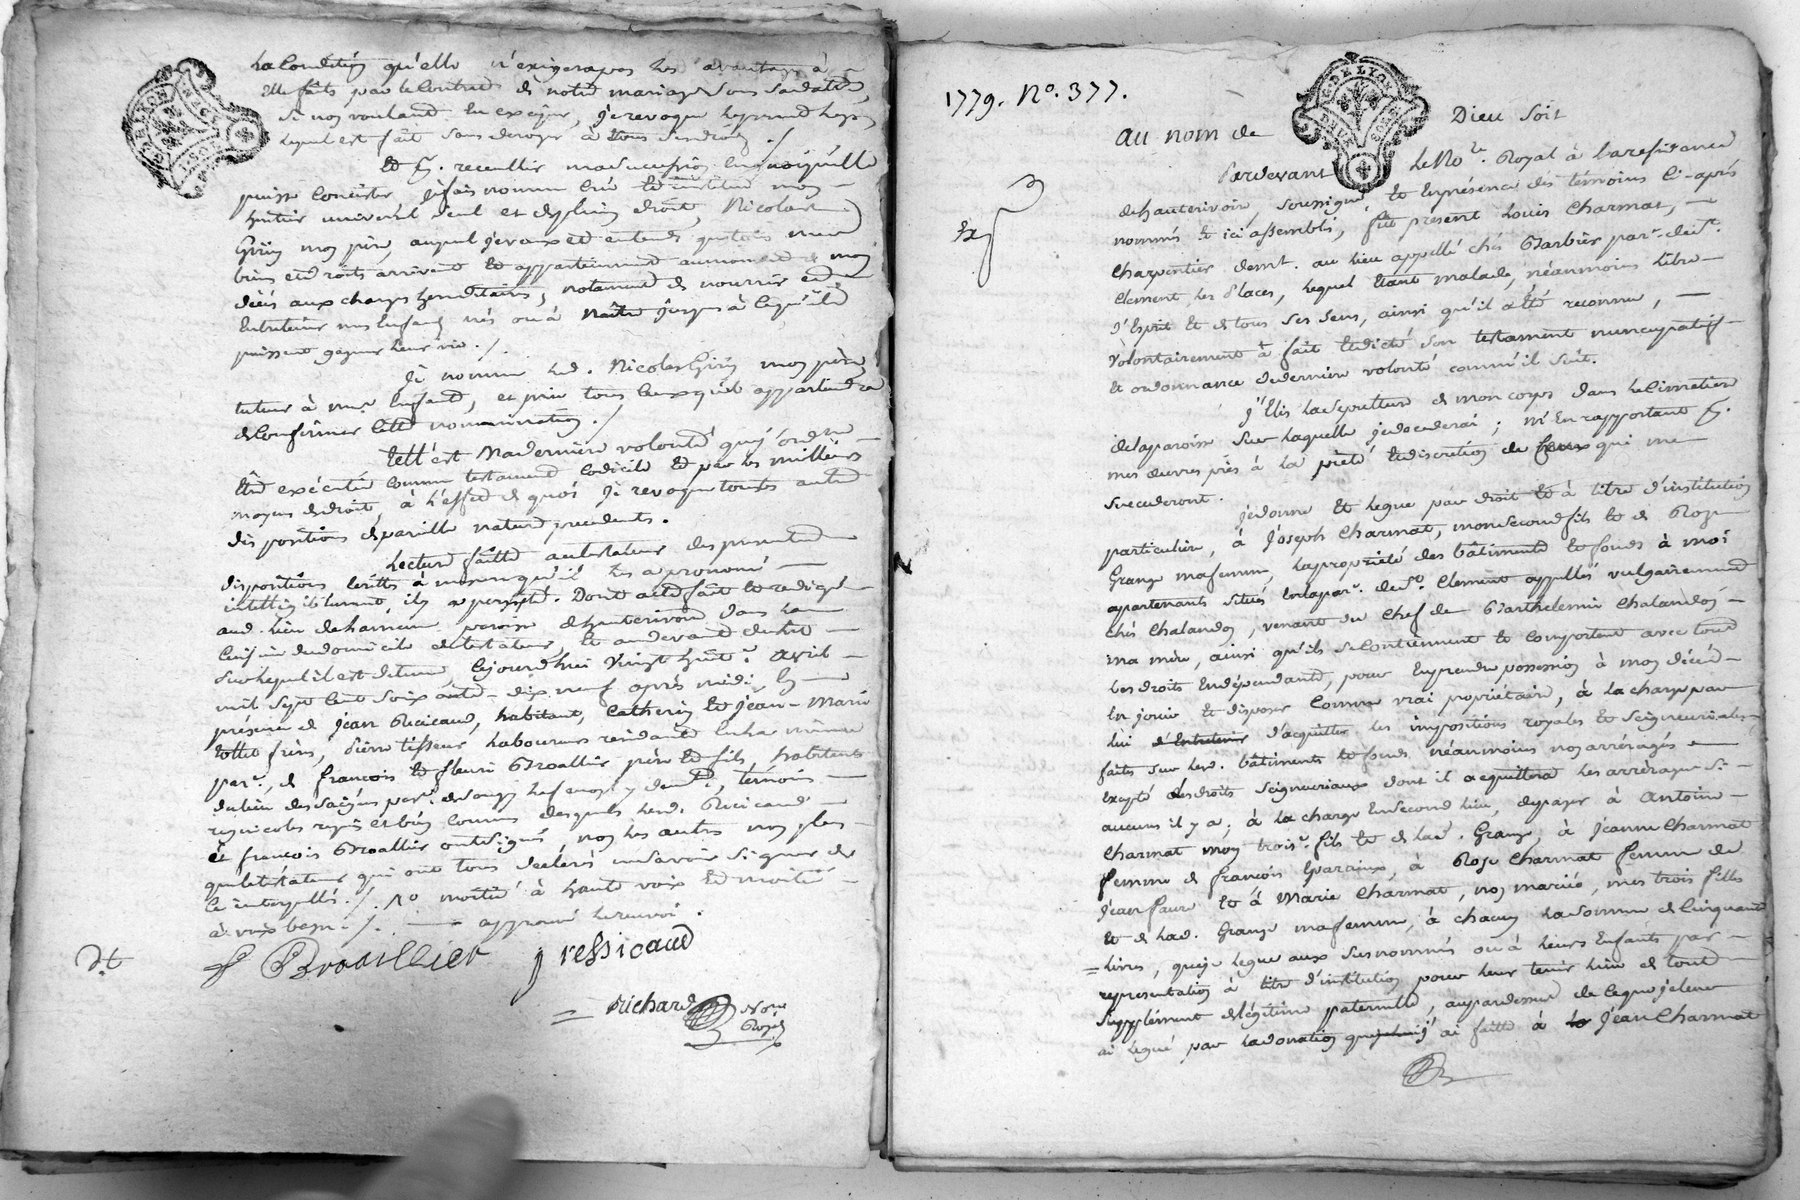 la condition qu'elle n'exigera pas les avantages à
elle faits par le contract de notre mariage sous sa datte,
si non voulant en exciger, je revoque le present legs
lequel est fait sans deroger à tous ses droits ./
puisse consister je fais nomme crée et institue mon
heritier universel seul et de plein droit, Nicolas
Giry mon père, auquel je veux et entends que tous mes
biens et droits arrivent et appartiennent au moment de mon
décès aux charges hereditaires, notament de nourrir et
entretenir mes enfans nés ou à naître jusqu'à ce qu'ils
puissent gagner leur vie ./.
Je nomme led. Nicolas Giry mon père
tuteur à mes enfants, et prie tous ceux qu'il appartiendra
de confirmer cette nomination ./
Tell'est ma dernière volonté que j'ordonne
être exécutée comme testament codicile et par les meilleurs
moyens de droit, à l'effet de quoi je revoque toutes autres
dispositions de pareille nature precedentes.
Lecture faitte au testateur des presentes
dispositions ecrittes à mesure qu'il les a prononcé
intelligiblement, il y a persisté. Dont acte fait et redigé
aud. lieu paroisse d'hauterivoire dans la
cuisine du domicile du testateur, et au devant du lit
sur lequel il est detenu, cejourd'hui vingt huit avril
mil sept cent soixante-dix neuf après midi, en
présence de Jean habitant, Catherin et Jean-Marie
frères, Pierre tisseur laboureurs residants en la même
par. de François et fleuri Broallier père et fils, habitants
témoins
requis et bien connus desquels led.
et françois Broallier ont signé, non les autres non plus
que le testateur qui ont tous declaré ne savoir signer de
ce interpellés ./. à haute voix et moitié
à voix basse ./. approuvé le renvoi.
Dt
f Broaillier j ressicaud
= Richard No.re
Royal
1779. N°. 377.
au nom de Dieu soit
Pardevant le No.re Royal à la residence
d'hauterivoire, soussigné, et en présence des témoins ci-après
nommés et ici assemblés, fut présent Louis Charmat,
charpentier demt. au lieu appellé chés Barbier par. de St.
Clement les Places, lequel étant malade, néanmoins libre
d'Esprit et de tous ses sens, ainsi qu'il a été reconnu,
volontairement à fait et dicté son testament nuncupatif
et ordonnance de dernière volonté comm'il suit.
J'Elis la sepulture de mon corps dans le cimetière
de la paroisse sur laquelle je decederai; m'en rapportant p.
mes œuvres pies à la pieté et discrétion de ceux qui me
succederont.
je donne et legue par droit et à titre d'institution
particulière, à Joseph Charmat, mon second fils et de Roze
Grange ma femme, la proprieté des bâtiments et fonds à moi
apartenants situés en la par. de St. Clement appellés vulgairement
chés Chalandon, venant du chef de Barthelemie Chalandon
ma mère, ainsi qu'ils se contiennent et comportent avec tous
les droits en dépendants, pour en prendre possession à mon décès
en jouir et disposer comme vrai proprietaire, à la charge par
lui d'entretenir d'acquitter les impositions royales et seigneuriales
faites sur lesd. bâtiments et fonds néanmoins non arréragés
excepté des droits seigneuriaux dont il acquittera les arrérages si
aucuns il y a; à la charge en second lieu, de payer à Antoine
Charmat mon trois.e fils et de lad. Grange, à Jeanne Charmat
femme de françois Garaioux, à Roze Charmat femme de
Jean faure et à Marie Charmat, non mariée, mes trois filles
et de lad. Grange ma femme, à chacun la somme de cinquante
= livres, que je legue aux susnommés ou à leurs enfants par
representation à titre d'institution pour leur tenir lieu de tout
supplément de légitime paternelle, au par dessus de ce que je leur
ai legué par la donation que j'ai faitte à Jean Charmat